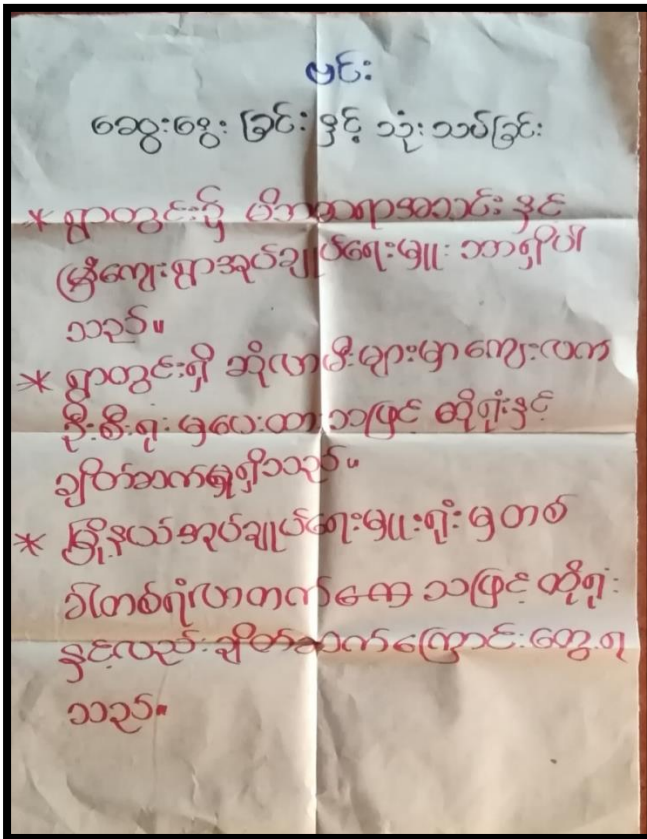 မင်း
ဆွေးနွေး ခြင်း နှင့် သုံး သပ်ခြင်း
* ရွာတွင်း၌ မိဘဆရာအသင်း နှင့်
မြို့ကျေးရွာအုပ်ချုပ်ရေးမှူး သာရှိပါ
သည်။
* ရွာတွင်းရှိ ဆိုလာမီးများမှာ ကျေးလက်
ဦးစီးရုံးမှပေးထားသဖြင့် ထိုရုံးနှင့်
ချိတ်ဆက်မှုရှိသည်။
* မြို့နယ်အုပ်ချုပ်ရေးမှူးရုံး မှတစ်
ခါတစ်ရံလာတက်စေ့သဖြင့် ထိုရုံး
နှင့်လည်း ချိတ်ဆက်ကြောင်း တွေ့ရ
သည်။